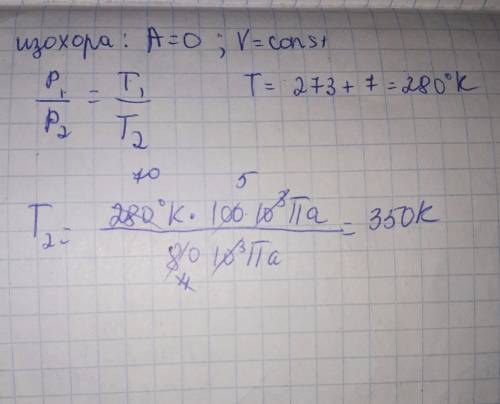 изохора: A=0 ; V=const
P₁/P₂ = T₁/T₂ T = 273 + 7 = 280°K
70 5
T₂ = 280°K · 100 · 10³ Па / 80 10³ Па = 350K
4